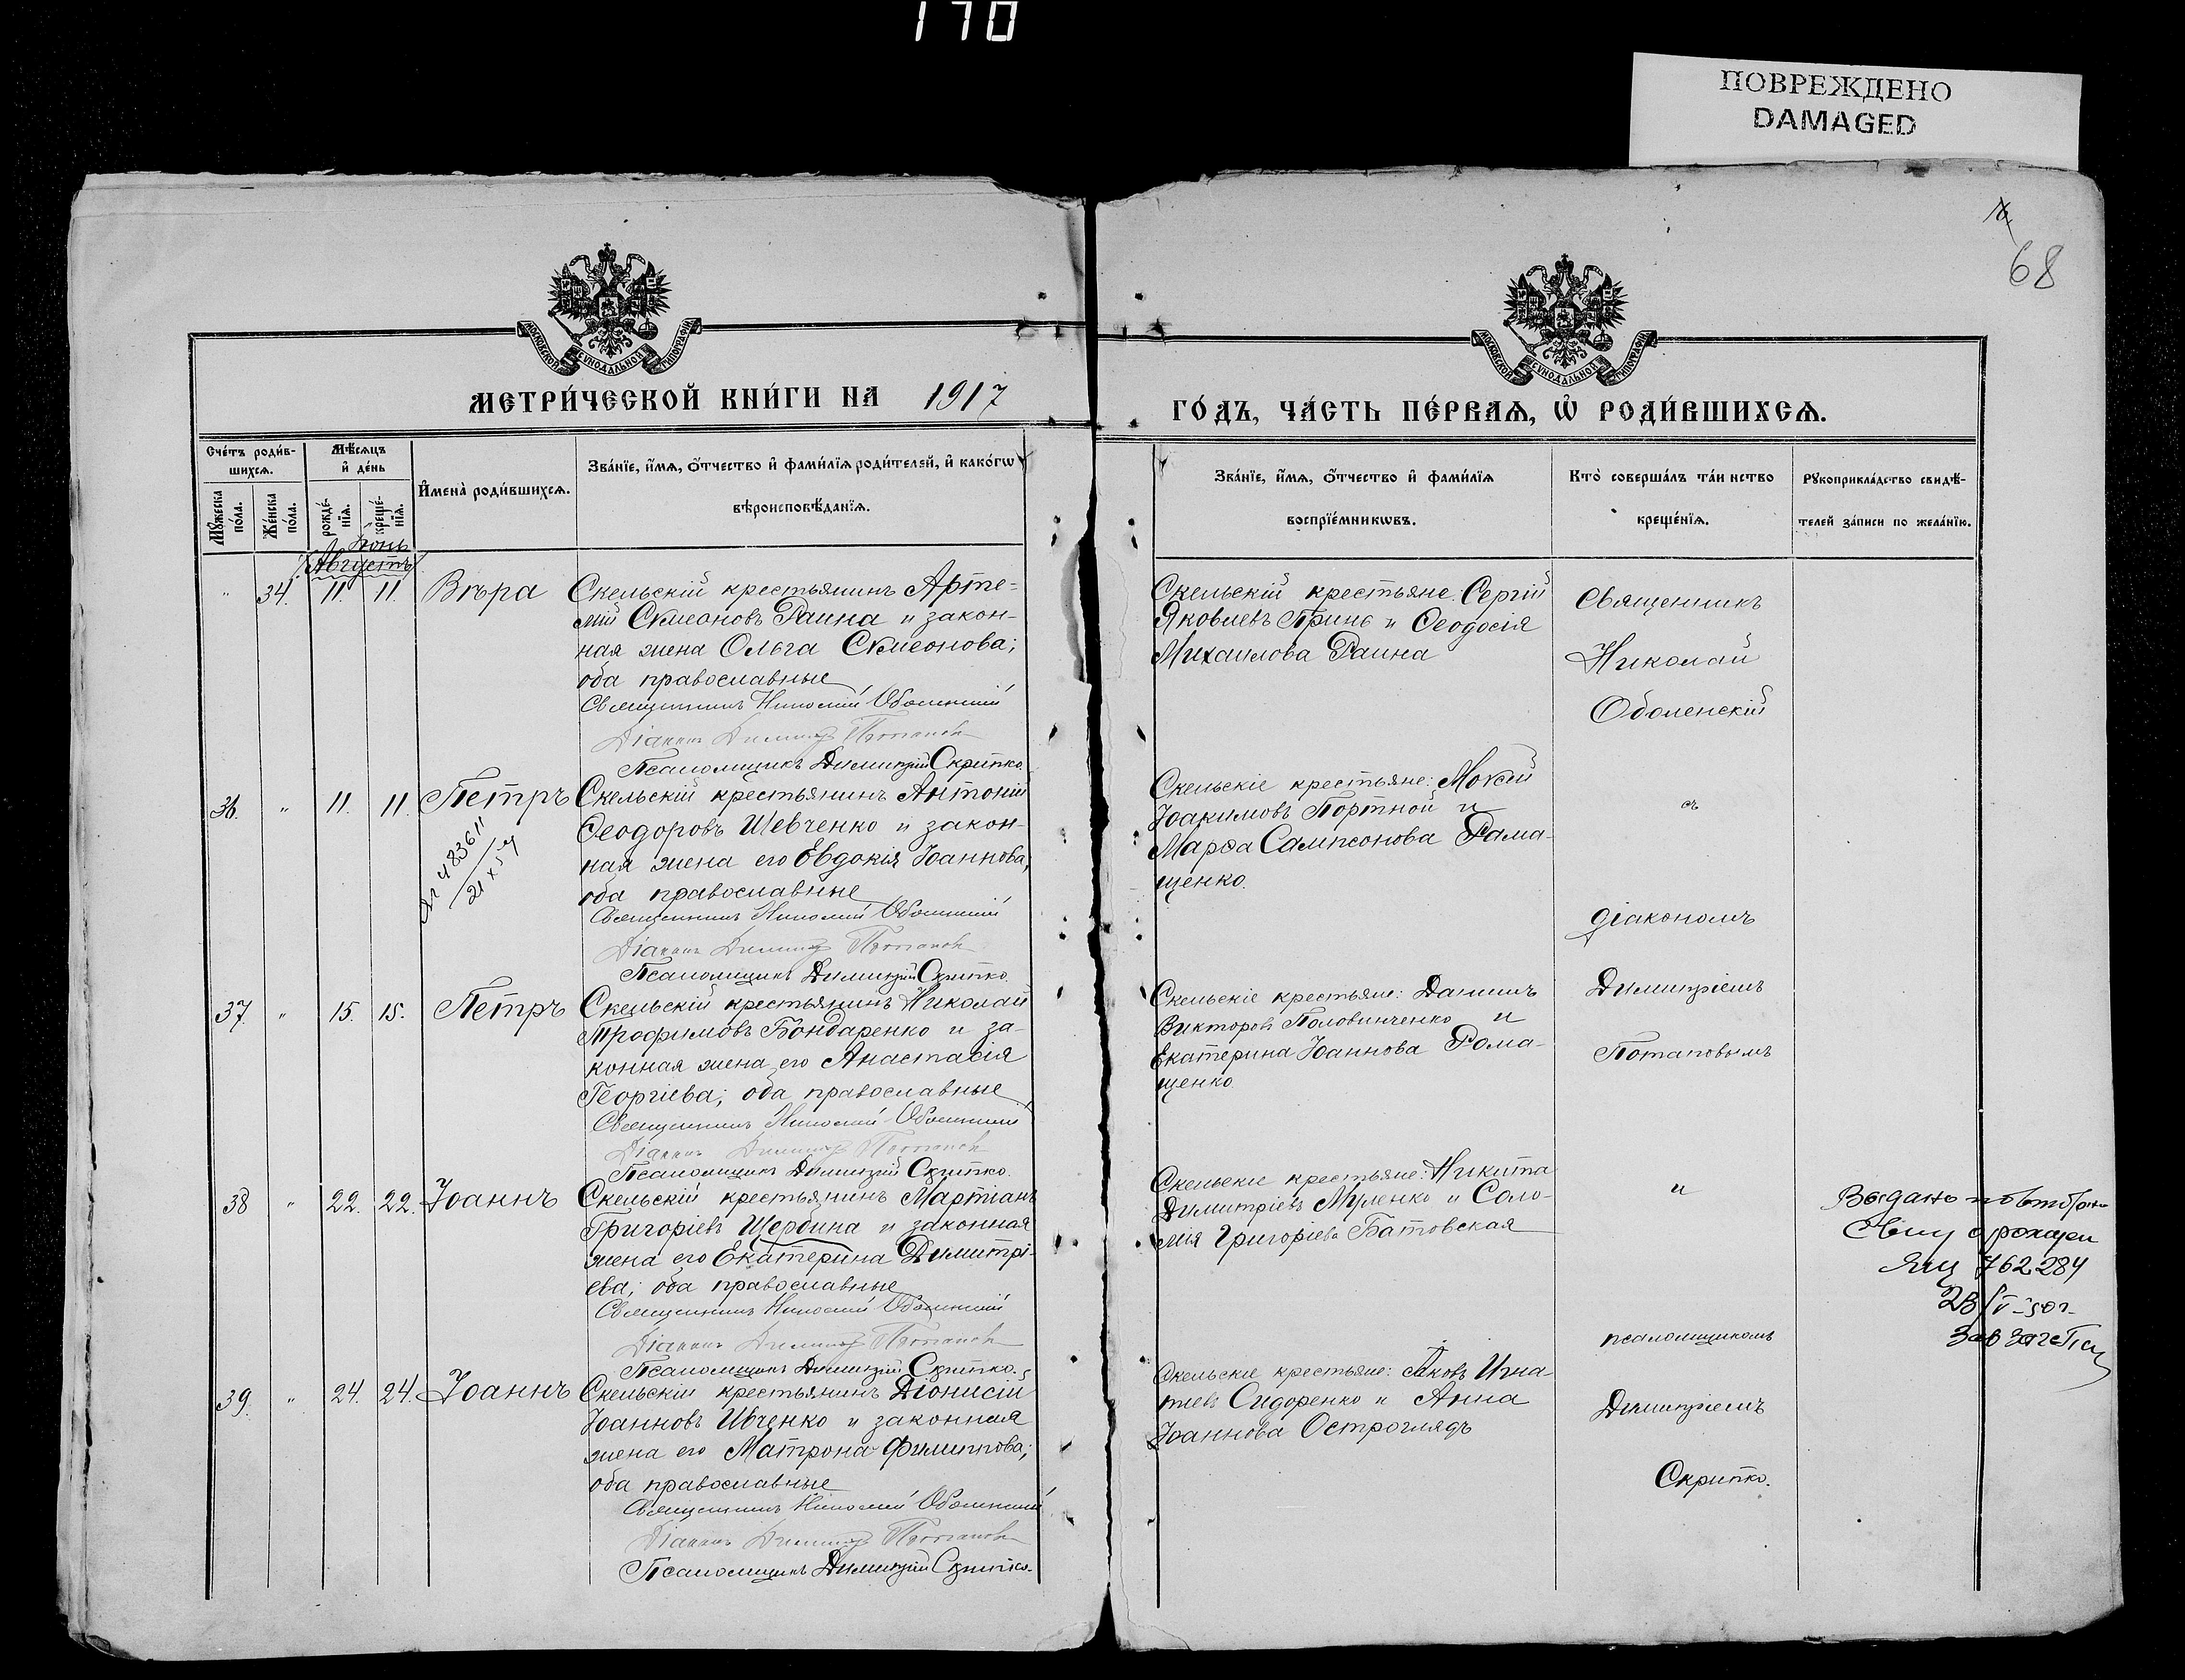 170
ПОВРЕЖДЕНО
DAMAGED
68
МОСКОВСКОЙ СѴНОДАЛЬНОЙ ТИПОГРАФІИ
МОСКОВСКОЙ СѴНОДАЛЬНОЙ ТИПОГРАФІИ
МЕТРИ́ЧЕСКОЙ КНИ́ГИ НА 1917
ГО́ДЪ, ЧА́СТЬ ПЕ́РВАѦ, Ѡ҆ РОДИ́ВШИХСѦ.
Сче́тъ роди́в-
шихсѧ.
Мѣ́сяцъ
и҆ де́нь
Мꙋ́жеска
по́ла.
Же́нска
по́ла.
рожде́-
нїѧ.
креще́-
нїѧ.
И҆мена̀ роди́вшихсѧ.
Зва́нїе, и҆́мѧ, ѻ҆́тчество и҆ фами́лїѧ роди́телей, и҆ како́гѡ
вѣроисповѣ́данїѧ.
Зва́нїе, и҆́мѧ, ѻ҆́тчество и҆ фами́лїѧ
воспрїе́мникѡвъ.
Кто̀ соверша́лъ та́инство
креще́нїѧ.
Рꙋкоприкла́дство свидѣ́-
телей за́писи по жела́нїю.
Іюнь
Августъ
" 34. 11. 11. Вѣра
Скельскій крестьянинъ Арте-
мій Симеоновъ Раина и закон-
ная жена Ольга Симеонова;
оба православные
Священникъ Николай Оболенскій
Діаконъ Димитрій Потаповъ
Псаломщикъ Димитрій Скрипко.
Скельскій крестьяне: Сергій
Яковлевъ Гринь и Ѳеодосія
Михаилова Раина
Священникъ
Николай
Оболенскій
36. " 11. 11. Петръ
21 X 57
Скельскій крестьянинъ Антоній
Ѳеодоровъ Шевченко и закон-
ная жена его Евдокія Іоаннова;
оба православные
Священникъ Николай Оболенскій
Діаконъ Димитрій Потаповъ
Псаломщикъ Димитрій Скрипко.
Скельскіе крестьяне: Мокій
Іоакимовъ Портной и
Марѳа Сампсонова Рома-
щенко.
съ
діакономъ
37. " 15. 15. Петръ
Скельскій крестьянинъ Николай
Трофимовъ Бондаренко и за-
конная жена его Анастасія
Георгіева; оба православные
Священникъ Николай Оболенскій
Діаконъ Димитрій Потаповъ
Псаломщикъ Димитрій Скрипко.
Скельскіе крестьяне: Даниилъ
Викторовъ Половинченко и
Екатерина Іоаннова Рома-
щенко.
Димитріемъ
Потаповымъ
38 " 22. 22. Іоаннъ
Скельскій крестьянинъ Мартіанъ
Григоріевъ Щербина и законная
жена его Екатерина Димитрі-
ева; оба православные
Священникъ Николай Оболенскій
Діаконъ Димитрій Потаповъ
Псаломщикъ Димитрій Скрипко.
Скельскіе крестьяне: Никита
Димитріевъ Муленко и Соло-
мія Григоріева Батовская
и
псаломщикомъ
Выдано повторно
762284
39. " 24. 24. Іоаннъ
Скельскій крестьянинъ Діонисій
Іоанновъ Ивченко и законная
жена его Матрона Филиппова;
оба православные
Священникъ Николай Оболенскій
Діаконъ Димитрій Потаповъ
Псаломщикъ Димитрій Скрипко.
Скельскіе крестьяне: Яковъ Игна-
тіевъ Сидоренко и Анна
Іоаннова Остроглядъ
Димитріемъ
Скрипко.